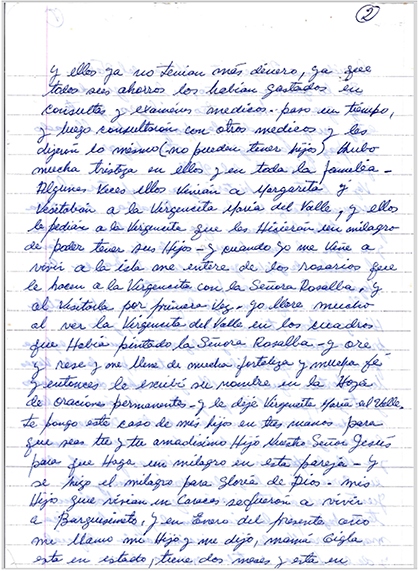 2
y ellos ya no tenian más dinero, ya que
todos sus ahorros los habian gastados en
consultas y examenes medicos. paso un tiempo,
y luego consultarón con otros medicos y les
dijerón lo mismo (no pueden tener hijos). Hubo
mucha tristeza en ellos y en toda la familia -
Algunas veces ellos venian a Margarita y
Visitában a la Virgencita María del Valle, y ellos
le pedian a la Virgencita que les Hicieran un milagro
de poder tener sus Hijos - y cuando yo me vine a
vivir a la isla me entere de los rosarios que
le hacen a la Virgencita con la Señora Rosalba, y
al Visitarla por primera Vez - yo llore mucho
al ver la Virgencita del Valle en los cuadros
que Había pintado la Señora Rosalba - y ore
y rese y me llene de mucha fortaleza y mucha fé
y entónces le escribí su nombre en la Hoja
de oraciones permanentes - y le dije Virgencita María del Valle.
te pongo este caso de mis hijos en tus manos para
que seas tu y tu amadisimo Hijo Nuestro Señor Jesús
para que Haga un milagro en esta pareja - y
se hizo el milagro para Gloria de Dios - mis
Hijos que vivian en Caracas se fuerón a vivir
a Barquisimeto, y en Enero del presente año
me llamo mi Hijo y me dijo, mamá Gigla
esta en estado, tiene dos meses y esta en